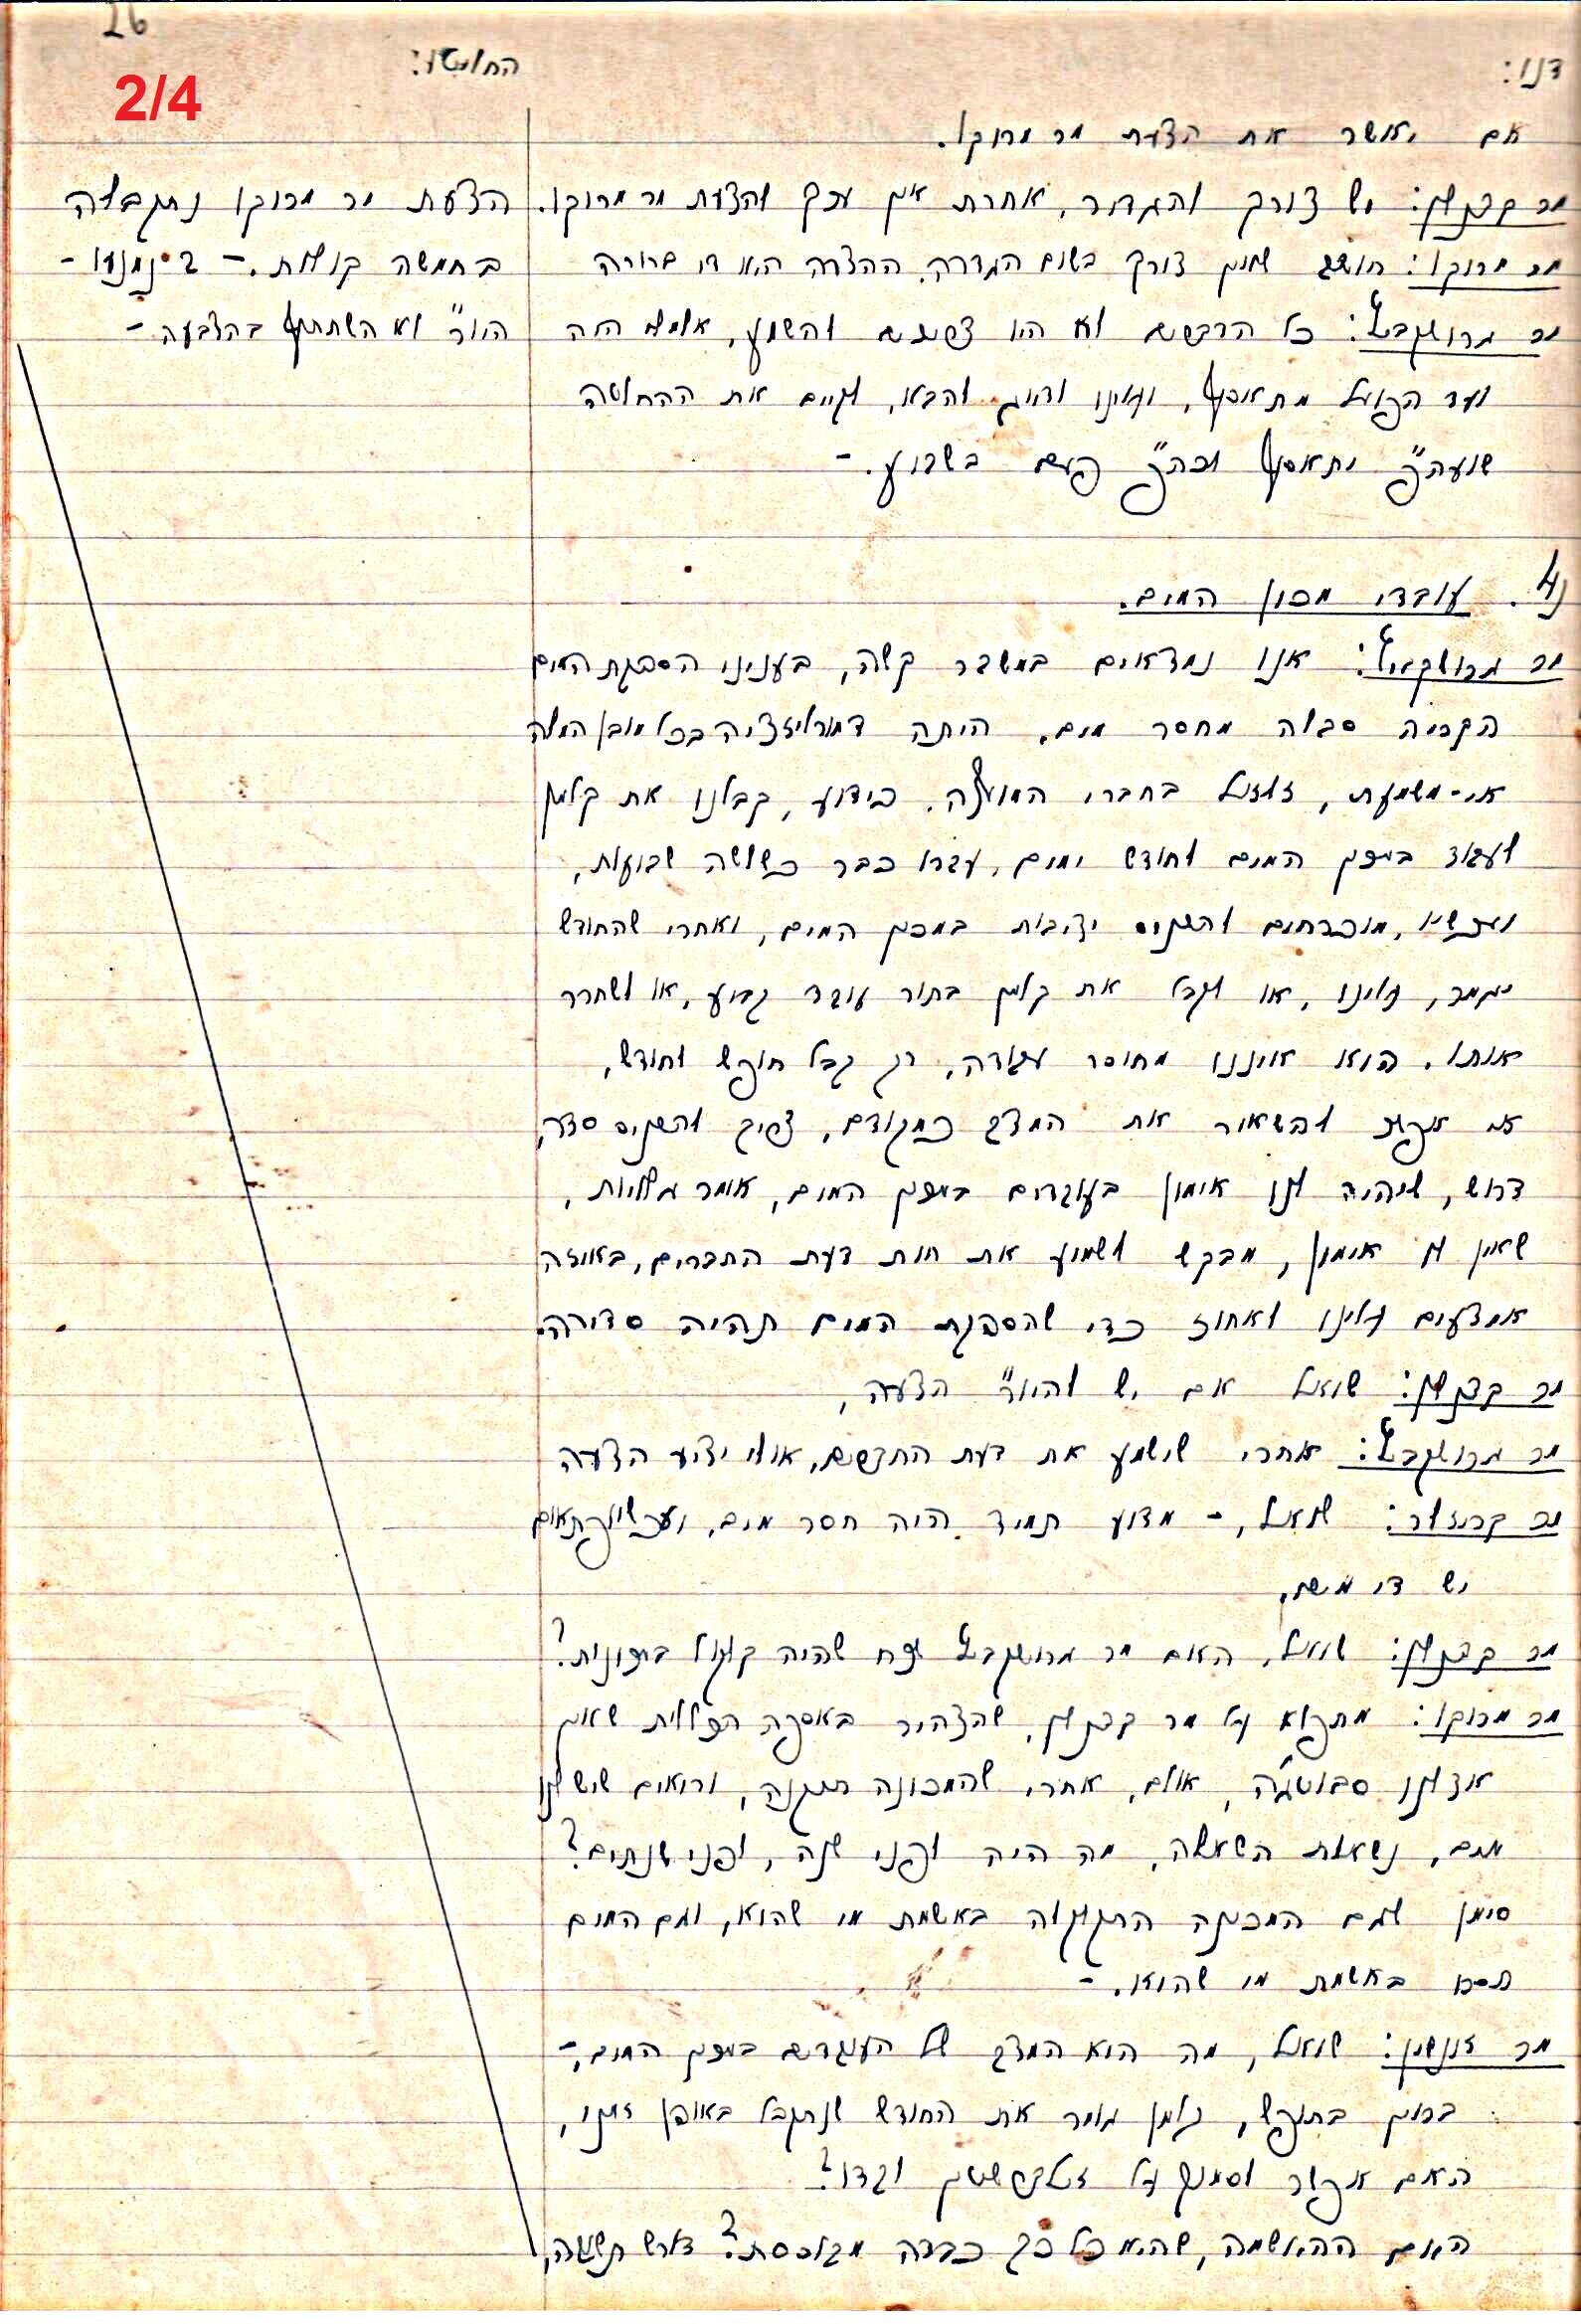 26
2/4
דנו:
החליטו:
אם יאושר את הצעת מר מרוקו.
מר קפלן: יש צורך והגדור, אחרת אין ערך להצעת מר מרוקו.
מר מרוקו: חושב שאין צורך בשום הגדרה, ההצעה היא די ברורה
מר גרושקביץ: כל הדברים לא היו צריכים להשמע, אילו היה
ועד הפועל מתאסף, ועלינו להיות להבא, לקיים את ההחלטה
שועה"פ יתאסף לכה"פ פעם בשבוע. -
הצעת מר מרוקו נתקבלה
בחמשה קולות. - 2 נמנעו -
היו"ר לא השתתף בהצבעה -
עובדי מכון המים.
מר גרושקביץ: אנו נמצאים במשבר קשה, בעניני הספקת המים
הקריה סבלה מחסר מים. היתה דמורליזציה בכל מובן המלה
אי-משמעת, זלזול בחברי המועצה. כידוע, קבלנו את קלמן
לעבוד במכון המים לחודש ימים, עברו כבר כשלושה שבועות,
ועכשיו, מוכרחים להכניס יציבות במכון המים, ואחרי שהחודש
יגמר, עלינו, או לקבל את קלמן בתור עובד קבוע, או לשחרר
אותו. הוא איננו מחוסר עבודה, רק קבל חופש לחודש,
אי אפשר להשאיר את המצב כמקודם, צריך להכניס סדר,
דרוש, שיהיה לנו אימון בעובדים במכון המים, אומר גלויות,
שאין לי אימון, מבקש לשמוע את חות דעת החברים, באיזה
אמצעים עלינו לאחוז כדי שהספקת המים תהיה סדירה.
מר קפלן: שואל אם יש להיו"ר הצעה,
מר גרושקביץ: אחרי שישמע את דעת החברים, אולי יציע הצעה
מר קרמזלר: שואל, - מדוע תמיד היה חסר מים, ועכשיו פתאום
יש די מים.
מר קפלן: שואל, האם מר גרושקביץ בטח שהיה קלקול במכונות?
מר מרוקו: מתפלא על מר קפלן, שהצהיר באספה הכללית שאין
אצלנו סבוטג'ה, אולם, אחרי שהמכונה תוקנה, ורואים שיש לנו
מים, נשאלת השאלה, מה היה לפני שנה, לפני שנתים?
סימן שגם המכונה התקלקלה באשמת מי שהוא, וגם המים
חסרו באשמת מי שהוא. -
שואל, מה הוא המצב של העובדים במכון המים, -
ברוך בחופש, קלמן גומר את החודש שנתקבל באופן זמני,
האם אפשר לסמוך על לבדו?
האם ההאשמה, שהיא כל כך כבדה מבוססת? דורש תשובה,